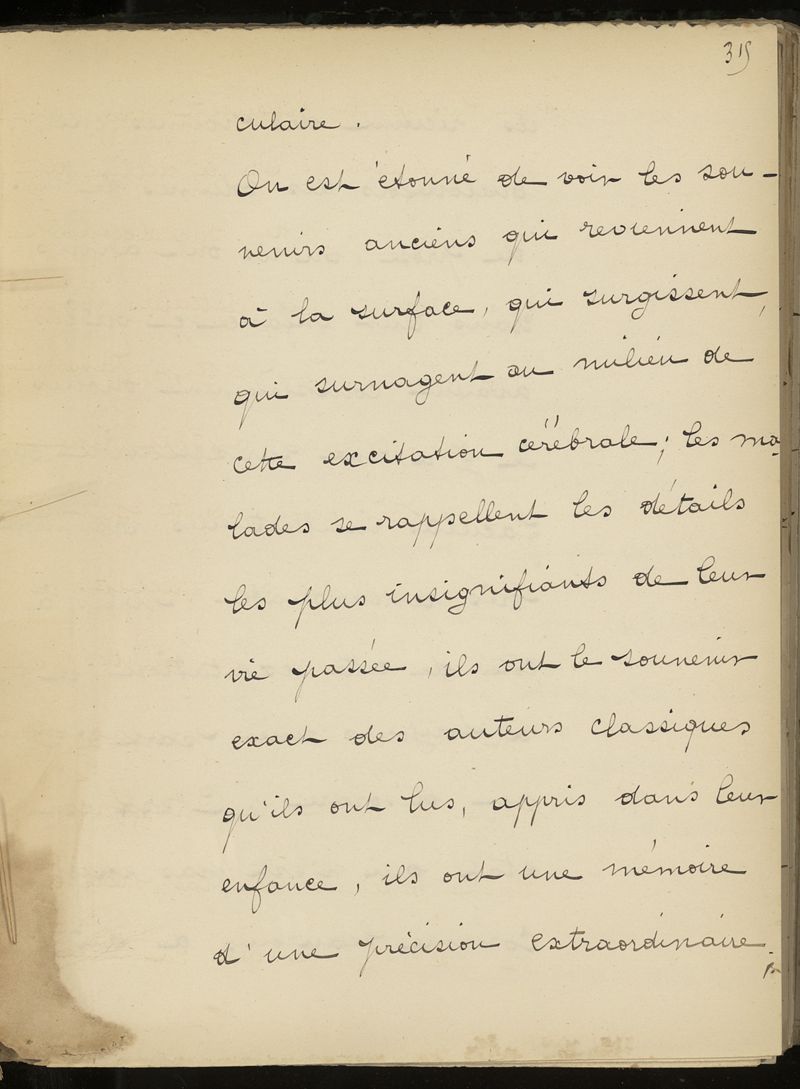 315
culaire.
On est étonné de voir les sou-
venirs anciens qui reviennent
à la surface, qui surgissent,
qui surnagent au milieu de
cette excitation cérébrale; les ma-
lades se rappellent les détails
les plus insignifiants de leur
vie passée, ils ont le souvenir
exact des auteurs classiques
qu'ils ont lus, appris dans leur
enfance, ils ont une mémoire
d'une précision extraordinaire.